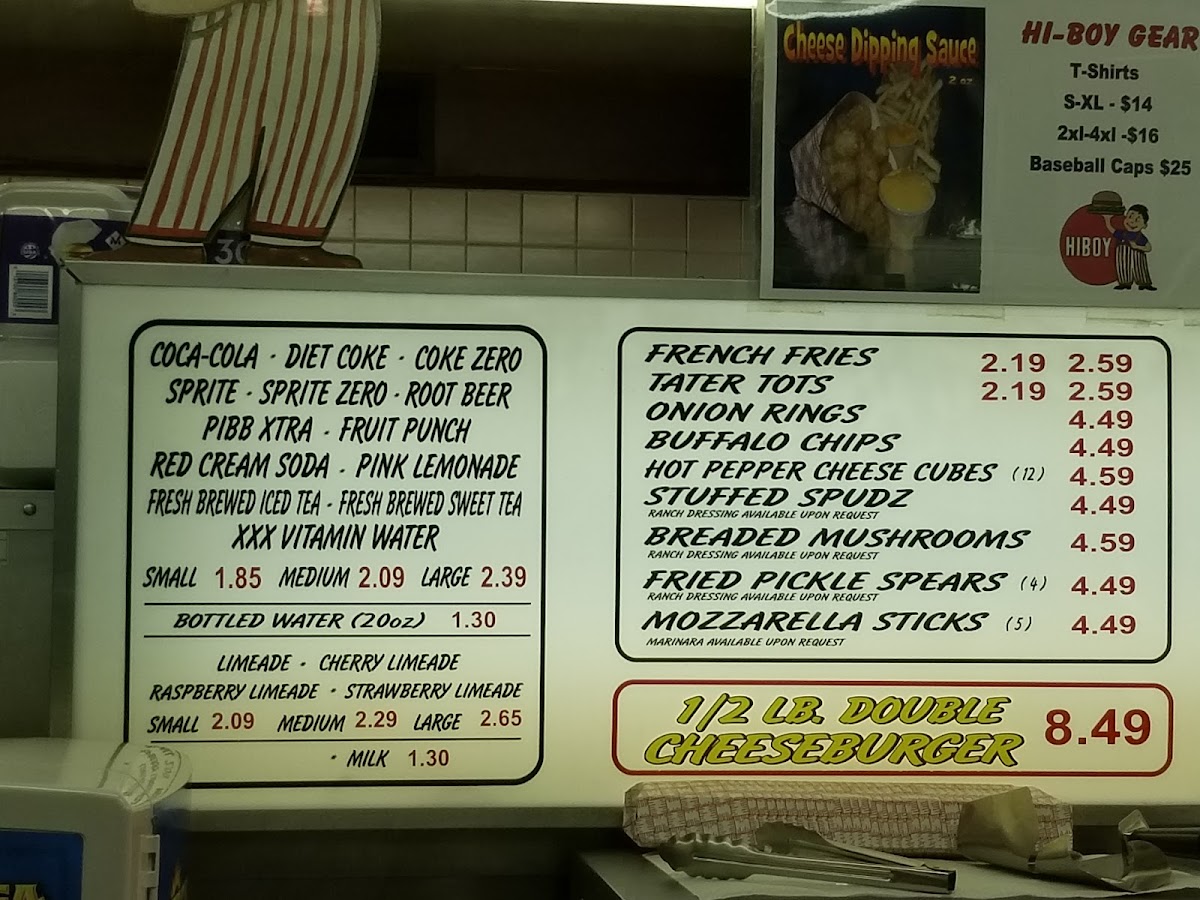 Cheese Dipping Sauce
2 oz
HI-BOY GEAR
T-Shirts
S-XL - $14
2xl-4xl -$16
Baseball Caps $25
HIBOY
30
COCA-COLA · DIET COKE · COKE ZERO
SPRITE · SPRITE ZERO · ROOT BEER
PIBB XTRA · FRUIT PUNCH
RED CREAM SODA · PINK LEMONADE
FRESH BREWED ICED TEA · FRESH BREWED SWEET TEA
XXX VITAMIN WATER
SMALL 1.85 MEDIUM 2.09 LARGE 2.39
BOTTLED WATER (20oz) 1.30
LIMEADE · CHERRY LIMEADE
RASPBERRY LIMEADE · STRAWBERRY LIMEADE
SMALL 2.09 MEDIUM 2.29 LARGE 2.65
· MILK 1.30
FRENCH FRIES 2.19 2.59
TATER TOTS 2.19 2.59
ONION RINGS 4.49
BUFFALO CHIPS 4.49
HOT PEPPER CHEESE CUBES (12) 4.59
STUFFED SPUDZ 4.49
RANCH DRESSING AVAILABLE UPON REQUEST
BREADED MUSHROOMS 4.59
RANCH DRESSING AVAILABLE UPON REQUEST
FRIED PICKLE SPEARS (4) 4.49
RANCH DRESSING AVAILABLE UPON REQUEST
MOZZARELLA STICKS (5) 4.49
MARINARA AVAILABLE UPON REQUEST
1/2 LB. DOUBLE
CHEESEBURGER 8.49